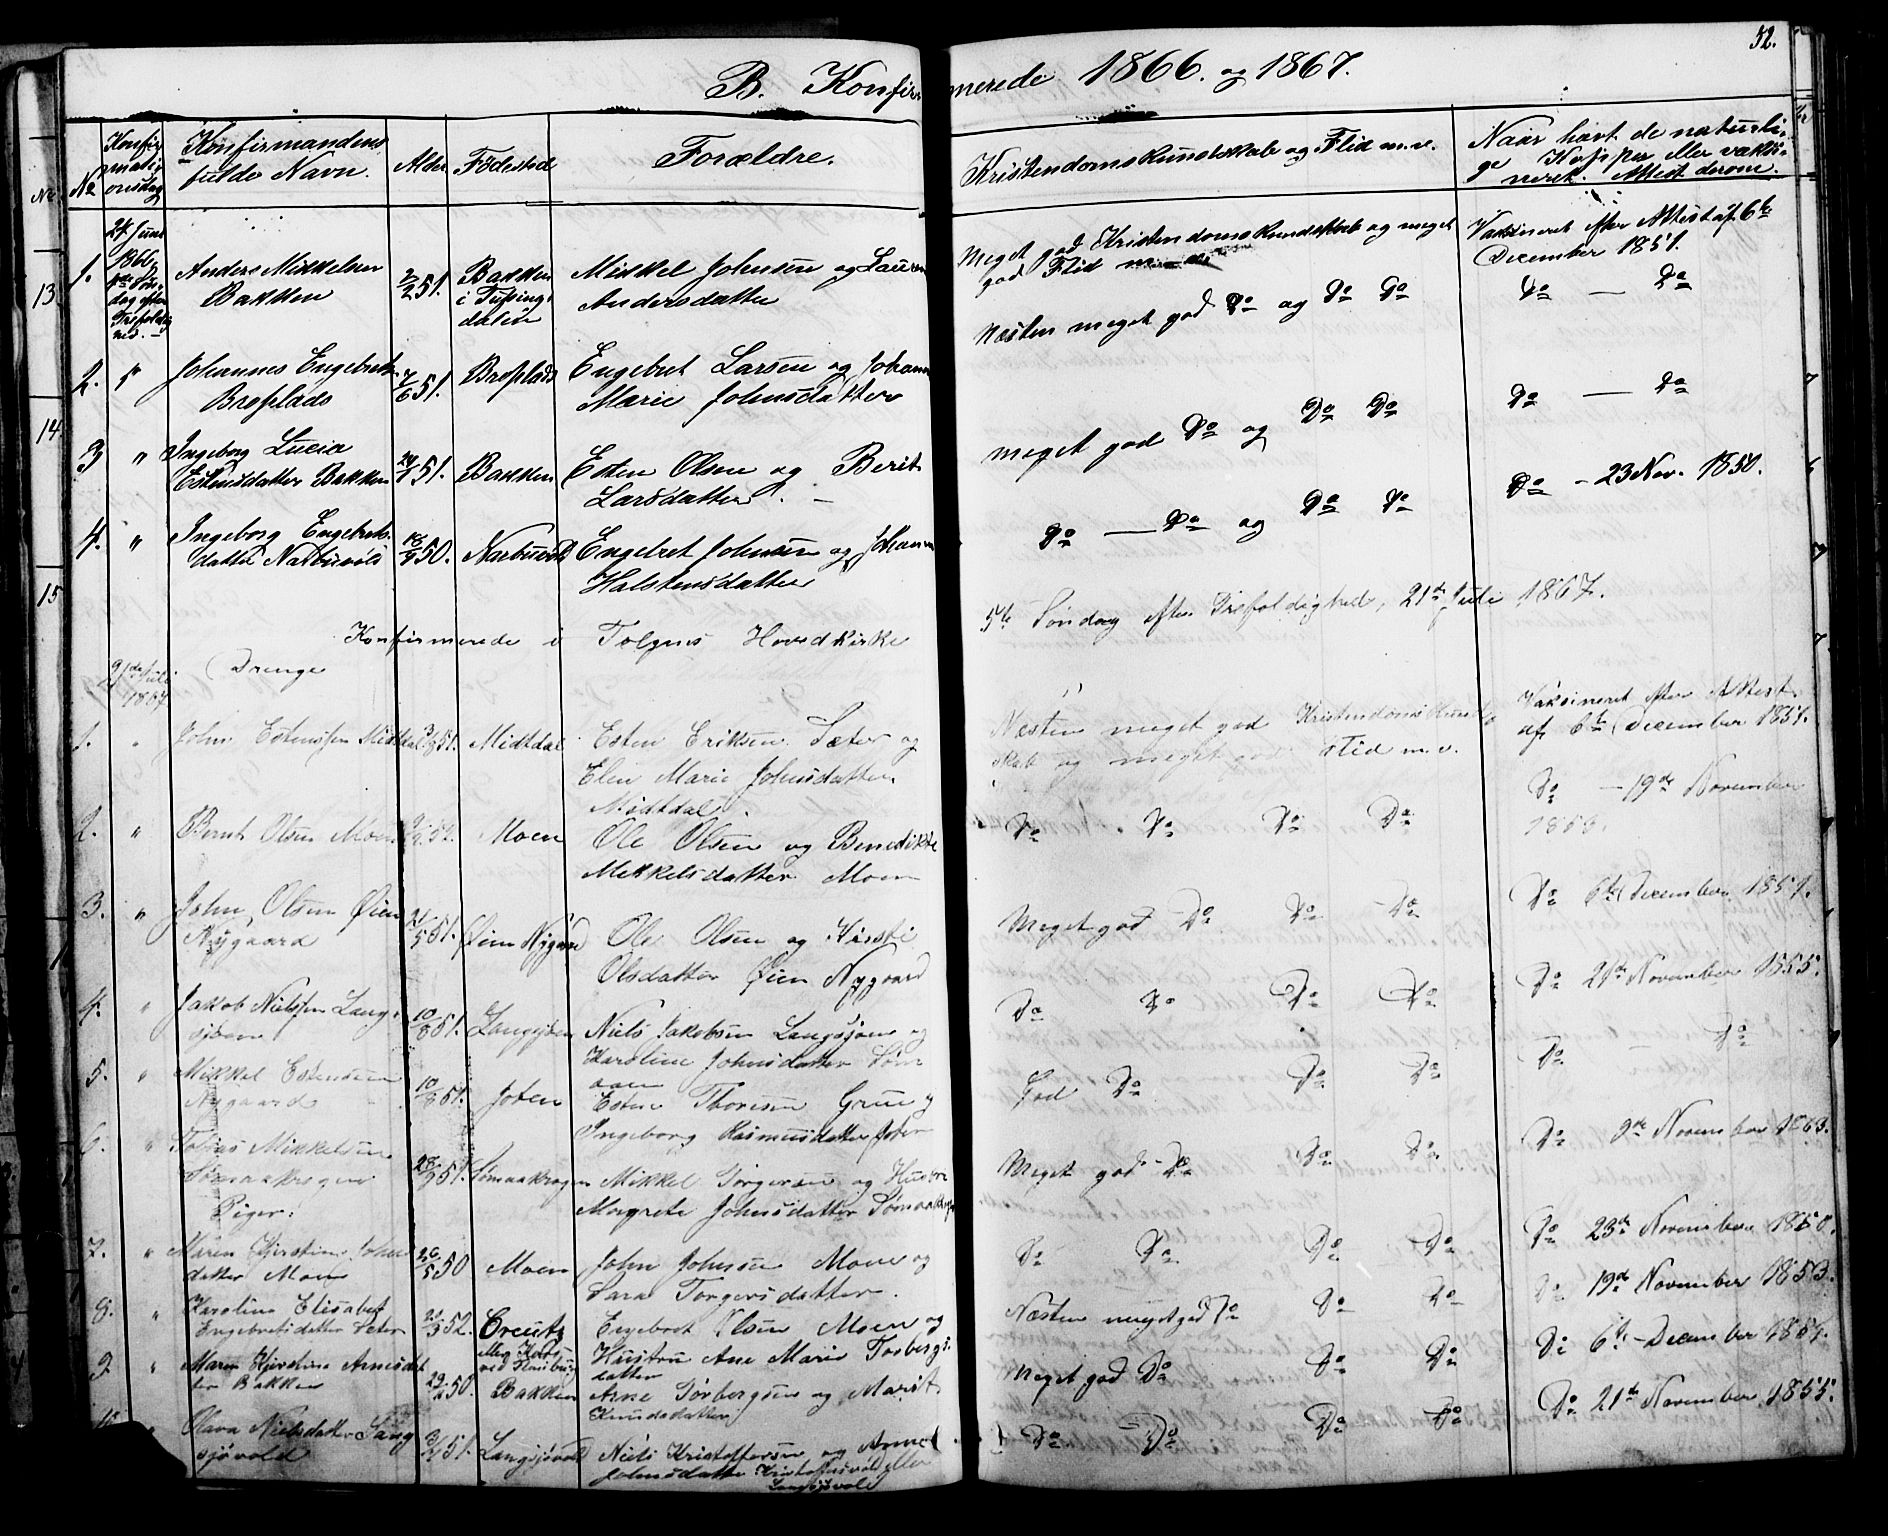 52.
B. Konfirmerede 1866. og 1867.
No
Konfirmationsdag
Konfirmandens fulde Navn.
Alder
Födested
Forældre.
Kristendomskundskab og Flid m.v.
Naar havt de naturlige Kopper eller vaksineret. Attest derom.
13.
14.
15
1. 24 Juni
Anders Mikkelsen Bakken
2/2 51.
Bakken i
Mikkel Johnsen og
Andersdatter
Meget god Kristendomskundskab og meget god Flid m.v.
Vaksineret efter Attest af 6te December 1851.
2. "
Johannes Engebretsen
51.
Engebret Larsen og
Marie Johnsdatter
Næsten meget god Do og Do Do
Do — Do
3 "
Ingeborg Lucia Estensdatter Bakken
51.
Bakken
Esten Olsen og Berit Larsdatter. —
meget god Do og Do Do
Do — Do
4. "
Ingeborg Engebretsdatter Narbuvold
50.
Narbuvold
Engebret Johnsen og
Halstensdatter
Do — Do og Do Do
Do - 23 Nov. 1850.
Konfirmerede i Tolgens Hovedkirke 5te Søndag efter Trefoldighed, 21de Juli 1867.
21de Juli 1867
Drenge
1. "
John Estensen Midtdal
51.
Midtdal
Esten Eriksen Sæter og
Elen Marie Johnsdatter
Midtdal.
Næsten meget god Kristendomskundskab og meget god Flid m.v.
Vaksineret efter Attest af 6te December 1851.
2. "
Bernt Olsen Moen
52.
Moen
Ole Olsen og Benedikte
Mikkelsdatter Moen
Do Do Do Do
Do — 19de November
1853.
3. "
John Olsen Øien Nygaard
51.
Øien Nygaard
Ole Olsen og Kirsti
Olsdatter Øien Nygaard
Meget god Do Do Do
Do 6te December 1851.
4. "
Jakob Nielsen Langsjøen
10/8 51.
Langsjøen
Niels Jakobsen Langsjøen og
Karoline Johnsdatter
Do Do Do Do
Do 21de November 1855.
5. "
Mikkel Estensen Nygaard
51.
Joten
Esten Thoresen Grue og
Ingeborg Rasmusdatter Joten
God Do Do Do
Do — Do
6. "
Tobias Mikkelsen Sømaakrogen
51.
Sømaakrogen
Mikkel Torgersen og Hustru
Margrete Johnsdatter Sømaakrogen
Meget god Do Do Do
Do 9de November 1863.
Piger:
7. "
Maren Kjerstine Johnsdatter Moen
50
Moen
John Johnsen Moen og
Sara Torgersdatter.
Do Do Do Do
Do 23de November 1850.
8. "
Karoline Elisabet Engebretsdatter
52.
Engebret Olsen Moen og
Hustru Ane Marie Torbergsdatter
Næsten meget god Do Do Do
Do 19de November 1853.
9 "
Maren Arnesdatter Bakken
50.
Bakken
Arne Torbergsen og Marit
Knudsdatter
Meget god Do Do Do
Do 6te December 1851.
Olava Nielsdatter Langsjøvold
51.
Langsjøvold
Niels Kristoffersen og Anne
Johnsdatter Kristoffersvold eller
Langsjøvold
Do — Do Do Do
Do 21de November 1855.